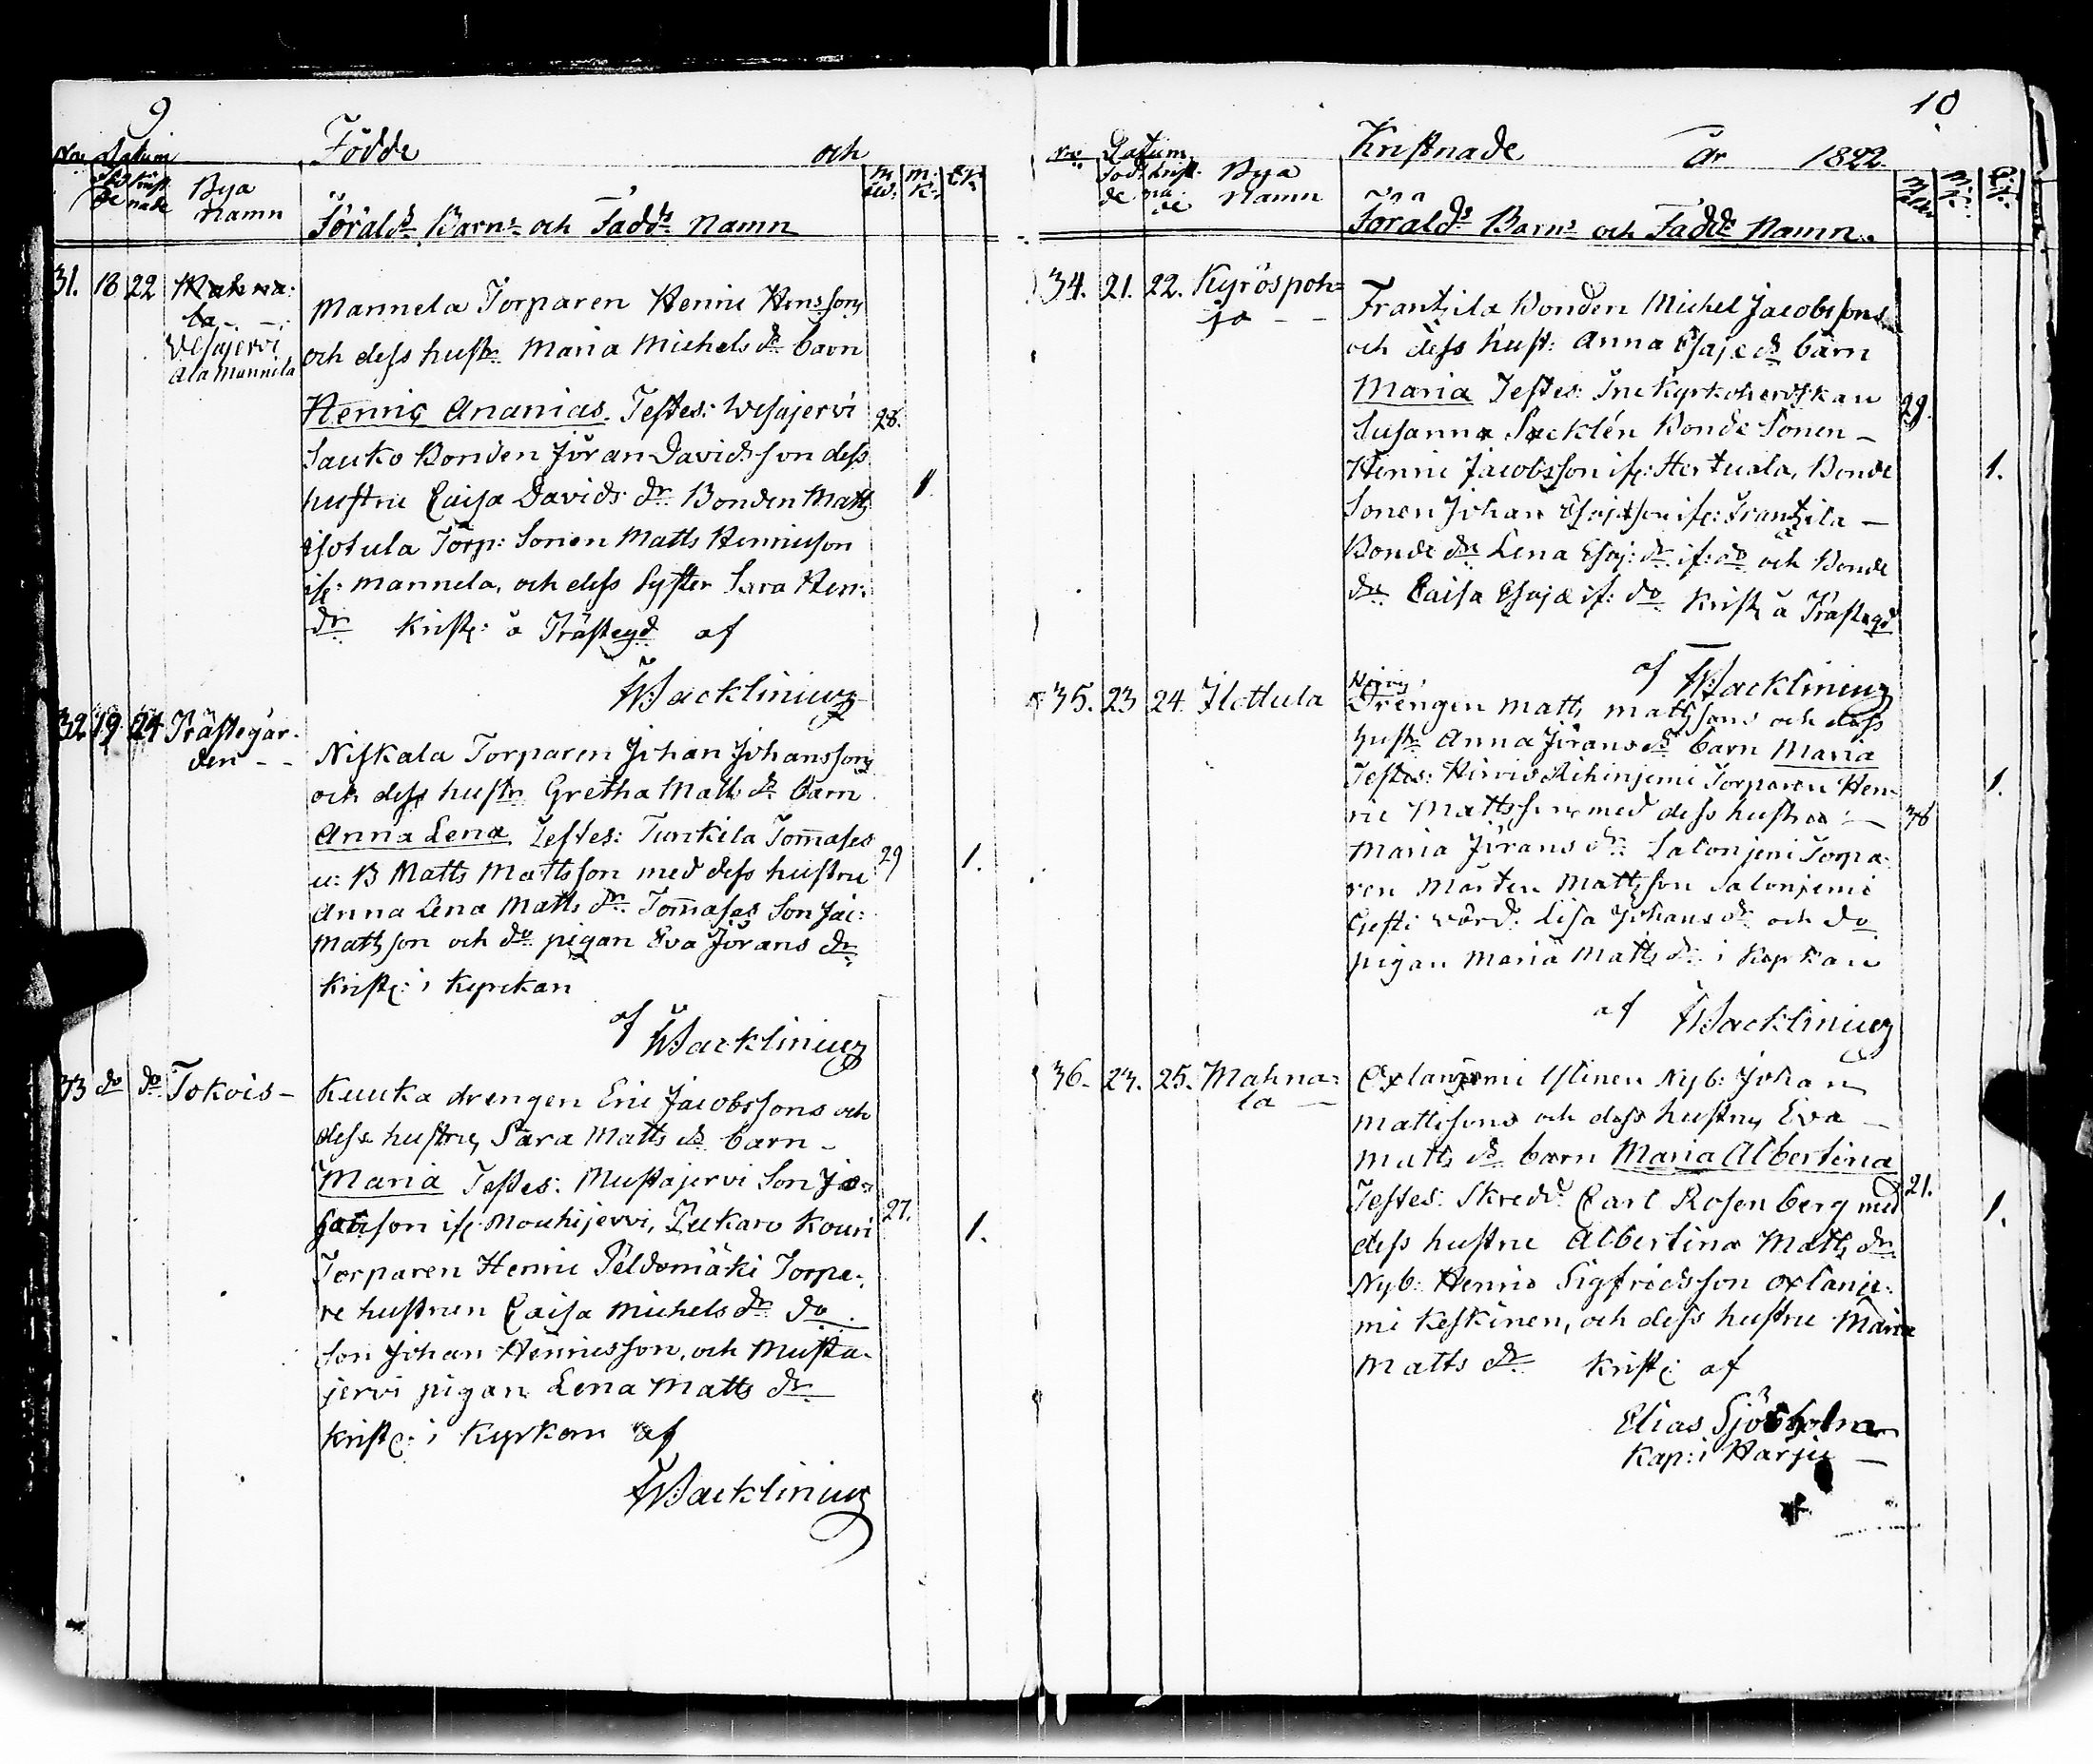 9
Födde och
No Datum
Föd de Krist nade Bya Namn Föräldrs Barns och Fadds Namn M åld: M: K: Q: K:
31. 18 22 Mahna:
la - -
Wesajervi
Ala Mannila
Mannela Torparen Henric Henssons
och dess hustr Maria Michels dr barn
Henric Ananias. Testes: Wesajervi 28.
Sauko Bonden Jöran Davidsson dess
hustru Caisa Davids dr Bonden Matts 1
isotula Torp: Sonen Matts Henricsson
ifr: Mannela, och dess Syster Sara Hen:
dr Kristn: å Prästegd af
Wacklinius
32 19 24 Prästegår-
den - -
Niskala Torparen Johan Johanssons
och dess hustr Gretha Matts dr barn
Anna Lena Testes: Turkila Tom̄ases
u: B Matts Mattsson med dess hustru 29 1.
Anna Lena Matts dr. Tom̄ases Son Jac:
Mattsson och do pigan Eva Jörans dr
Kristn: i Kyrckan
af Wacklinius
33 do do Tokois - Kuuka drengen Eric Jacobssons och
dess hustru, Sara Matts dr barn -
Maria Testes: Mustajervi Son
son ifr Mouhijervi, Pukaro Kouri 27. 1.
Torparen Henric Peldomäki Torpa-
re hustrun Caisa Michels dr do
Son Johan Henricsson, och Musta-
jervi pigan Lena Matts dr
Kristn: i Kyrkan af
Wacklinius
10
Kristnade År 1822
No Datum
Föd de Krist na de Bya Namn Föräldrs Barns och Fadds Namn. M ålder M: K: Q: K:
34. 21. 22. Kyröspoh=
ja - -
Frantzila Bonden Michel Jacobssons
och dess hust: Anna Esaje dr barn
Maria Testes: Kyrkoherdskan 29.
Susanna Sacklén Bonde Sonen -
Henric Jacobsson ifr: Hertuala, Bonde 1.
Sonen Johan Esajeson ifr: Frantzila -
Bonde dn Lena Esaj: dr ifr: do och Bonde
dn Caisa Esajæ ifr: do Kristn å Prästegd
af Wacklinius
35. 23 24. Jlottula Hirvis
Drengen Matts Mattssons och dess
hustr Anna Jörans dr barn Maria
Testes: Hirvis Torparen Hen- 1.
ric Mattsson med dess hustru - 36
Maria Jörans dr: Salonjemi Torpa-
ren Mårten Mattsson Salonjemi
Gestgi vård: Lisa Johans dr och do
pigan Maria Matts dr: i Kyrkan
af Wacklinius
36. 23. 25. Mahna:
la -
Oxlanjemi Ylinen Nyb: Johan
Mattssons och dess hustru, Eva -
Matts dr barn Maria Albertina
Testes: Skredd: Carl Rosenberg med 21.
dess hustru Albertina Matts dr 1.
Nyb: Henric Sigfridsson Oxlanje:
mi Keskinen, och dess hustru Maria
Matts dr Kristn: af
Elias Sjöholm
Kap: i Harju -